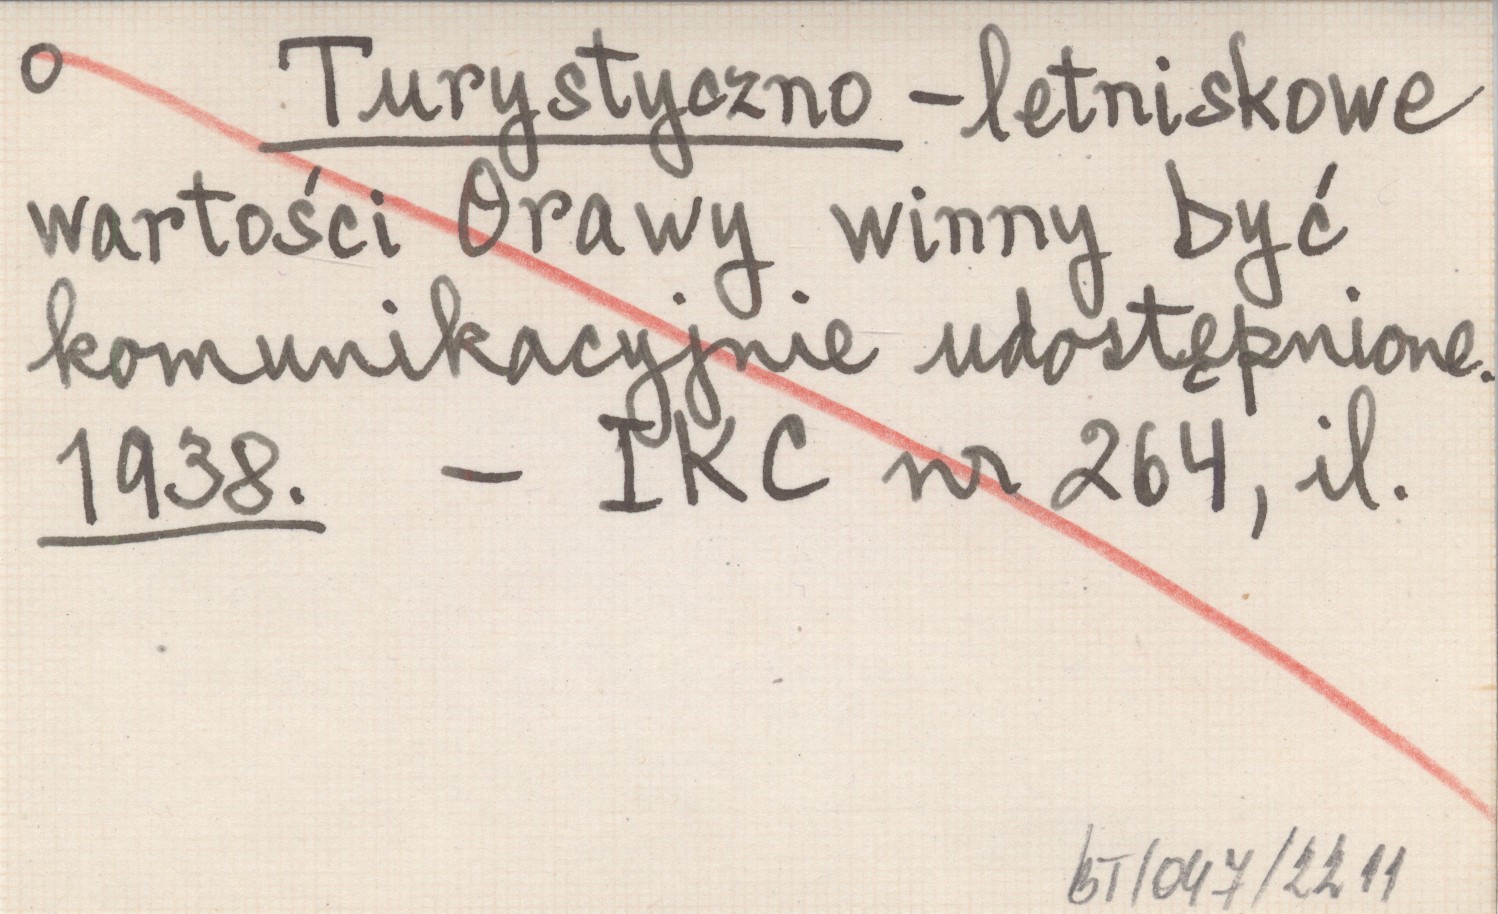 o Turystyczno-letniskowe
wartości Orawy winny być
komunikacyjnie udostępnione.
1938. - IKC nr 264, il.
BT/047/2211